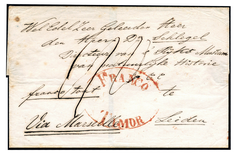 Wel Edel Zeer Geleerden Heer
den Heere Dr. Schlegel
Directeur van 's Rijks Museum
van natuurlijke Historie
FRANCO
franco te
TIMOR
Via Marseille Leiden